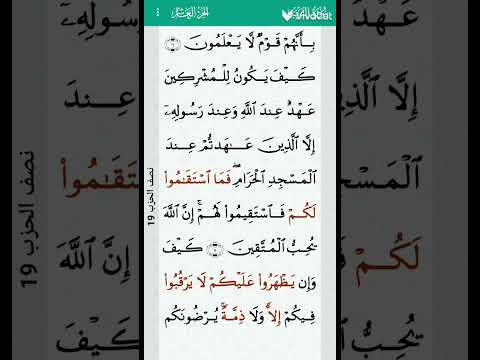 الجزء العاشر
VivaCut
بِأَنَّهُمْ قَوْمٌ لَّا يَعْلَمُونَ ۝٦
كَيْفَ يَكُونُ لِلْمُشْرِكِينَ
عَهْدٌ عِندَ ٱللَّهِ وَعِندَ رَسُولِهِۦٓ
إِلَّا ٱلَّذِينَ عَٰهَدتُّمْ عِندَ
ٱلْمَسْجِدِ ٱلْحَرَامِ ۖ فَمَا ٱسْتَقَٰمُوا۟
لَكُمْ فَٱسْتَقِيمُوا۟ لَهُمْ ۚ إِنَّ ٱللَّهَ
يُحِبُّ ٱلْمُتَّقِينَ ۝٧ كَيْفَ
وَإِن يَظْهَرُوا۟ عَلَيْكُمْ لَا يَرْقُبُوا۟
فِيكُمْ إِلًّا وَلَا ذِمَّةً ۚ يُرْضُونَكُم
نصف الحزب 19